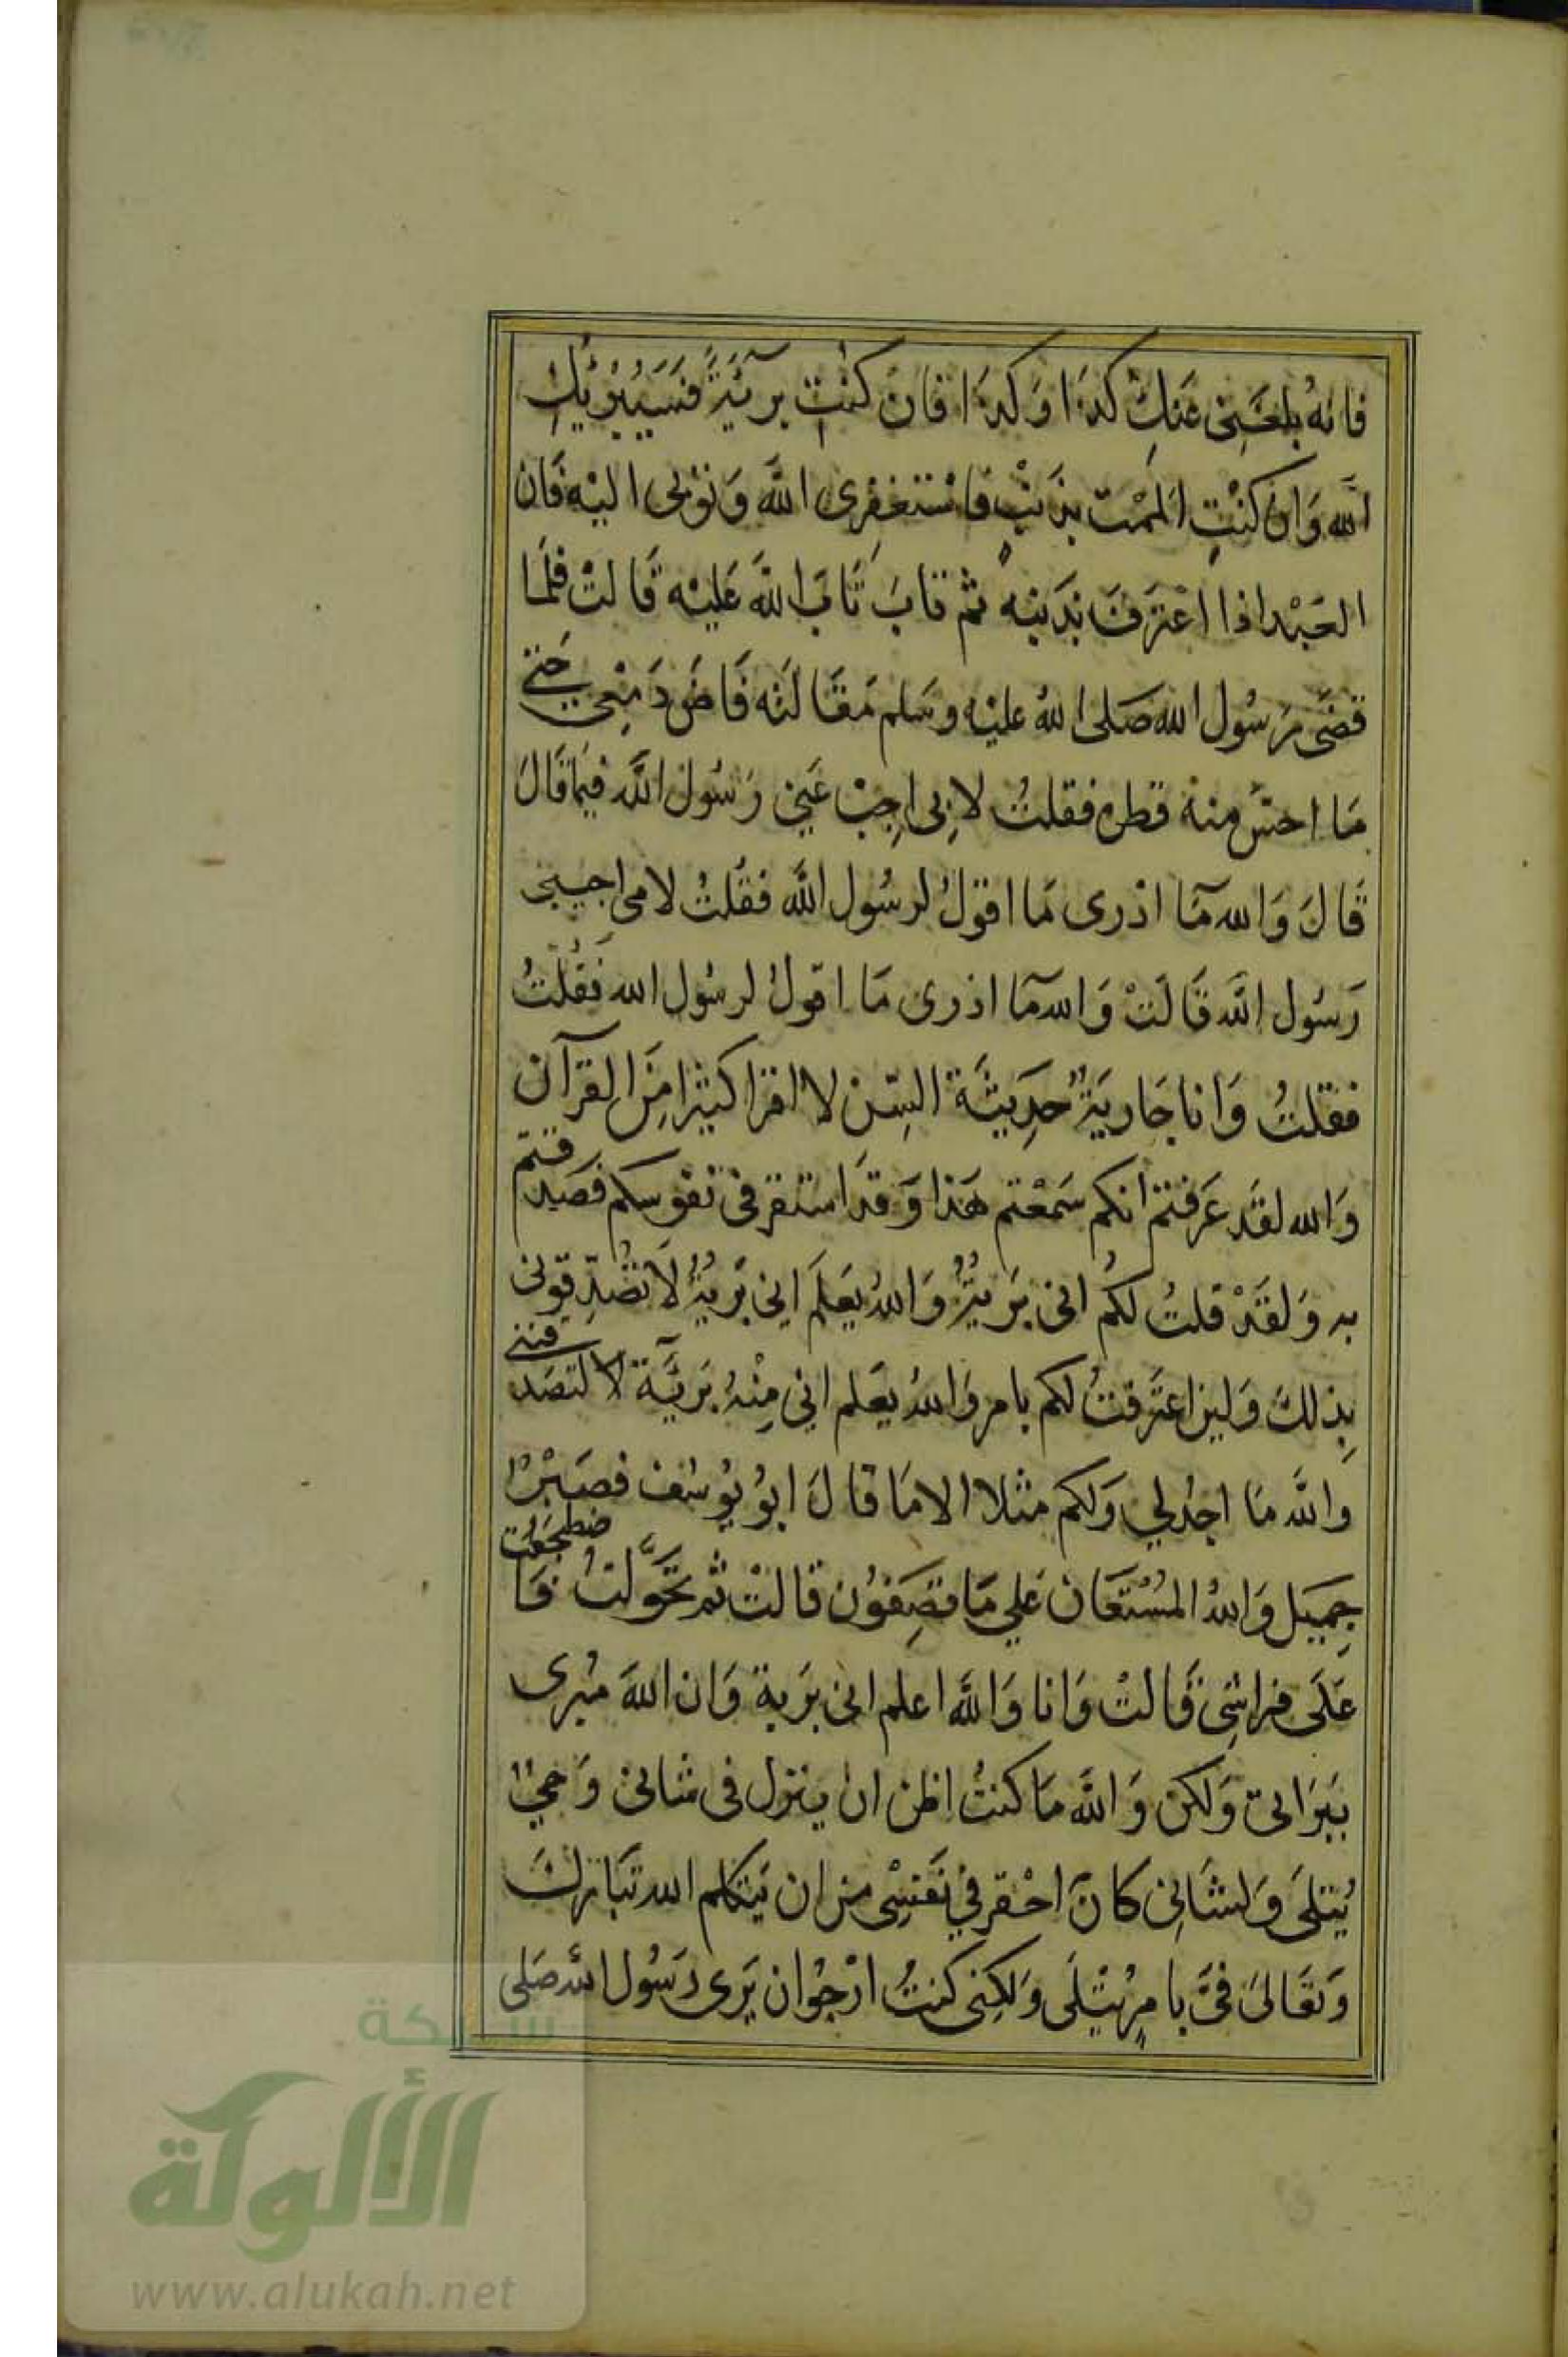 فانهُ بلغَنِى عَنكِ كذَا وَكذَا فان كنتِ برآئيَةً فسَيُبَرئُكِ
اللّه وَان كنْتِ المَمْتِ بذَنبٍ فاستغفِرى اللّهَ وَتوُبى اليْهِ فَان
العَبْد اذا اعْترَفَ بذَنبِهِ ثم تابَ تَابَ اللّهُ عَليْه قَالتْ فلمَا
قضَى رَسُول الله صَلى اللهُ عليْه وسَلم مَقَالتَه قَاض دَمْعِى حَتى
مَا احسّ منهُ قطره فقلتُ لابِى اجِبْ عَنِى رَسُول اللَّه فيمَا قَالَ
قَالَ وَالله مَآ ادْرى مَا اقوْلُ لرسُول اللَّه فقُلتُ لامى اجيبى
رَسُول اللَّه قَالَتْ وَالله مَآ ادْرى مَا اقولُ لرسُول الله فَقُلْتُ
فقلتُ وَانا جَاريَةٌ حدِيثَة السِّن لا اقرَا كثيرًا مِنَ القرآن
وَالله لقَد عَرَفتم انكم سَمعْتم هَذا وَقد استقر فى نفوسكم فصَدقتم
به وَلقَدْ قلتُ لكُم انى بَريَّةٌ وَاللهُ يَعَلَم انِى بَريَّةٌ لاَ تصَدِّقوُنى
بِذلكَ وَلين اعتَرفتُ لكم بامر وَاللهُ يعَلم انى مِنْهُ بَريَّة لا لتصَدقننى
واللَّه مَا اجدُ لي وَلكم مثلا الا مَا قالَ ابوُ يوُسُف فصَبْرٌ
جمِيَل وَاللهُ المُسْتعَان عَلي مَا تصِفوُن قالتْ ثم تحَوَّلتُ فَاضطجَعْت
عَلَى فراشِى قَالتْ وَانا وَاللَّه اعلم انى بَرَية وَان اللهَ مُبرى
ببَرَاتى وَلكن وَاللَّه مَا كنتُ اظن ان ينزل فى شانى وَحيٌ
يُتلَى وَلشَانِى كانَ احْقر في نَفسِى من ان يَتكلم الله تبَاركَ
وَتعَالىَ فىَّ بامرٍ يُتْلَى وَلكِنى كنتُ ارْجوُ ان يَرى رَسُول اللهِ صَلى
شبكة
الألوكة
www.alukah.net